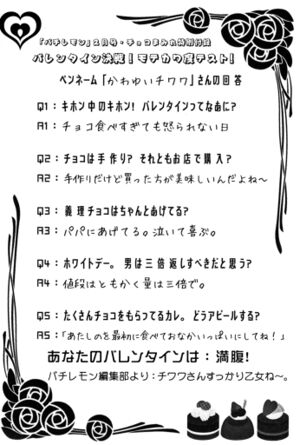 「パチレモン」2月号・チョコまみれ特別付録
バレンタイン決戦！モテカワ度テスト！
ペンネーム「かわゆいチワワ」さんの回答
Q1：キホン中のキホン！バレンタインってなあに？
A1：チョコ食べすぎても怒られない日
Q2：チョコは手作り？それともお店で購入？
A2：手作りだけど買った方が美味しいんだよね～
Q3：義理チョコはちゃんとあげてる？
A3：パパにあげてる。泣いて喜ぶ。
Q4：ホワイトデー。男は三倍返しすべきだと思う？
A4：値段はともかく量は三倍で。
Q5：たくさんチョコをもらってるカレ。どうアピールする？
A5：「あたしのを最初に食べておなかいっぱいにしてね！」
あなたのバレンタインは：満腹！
パチレモン編集部より：チワワさんすっかり乙女ね～。